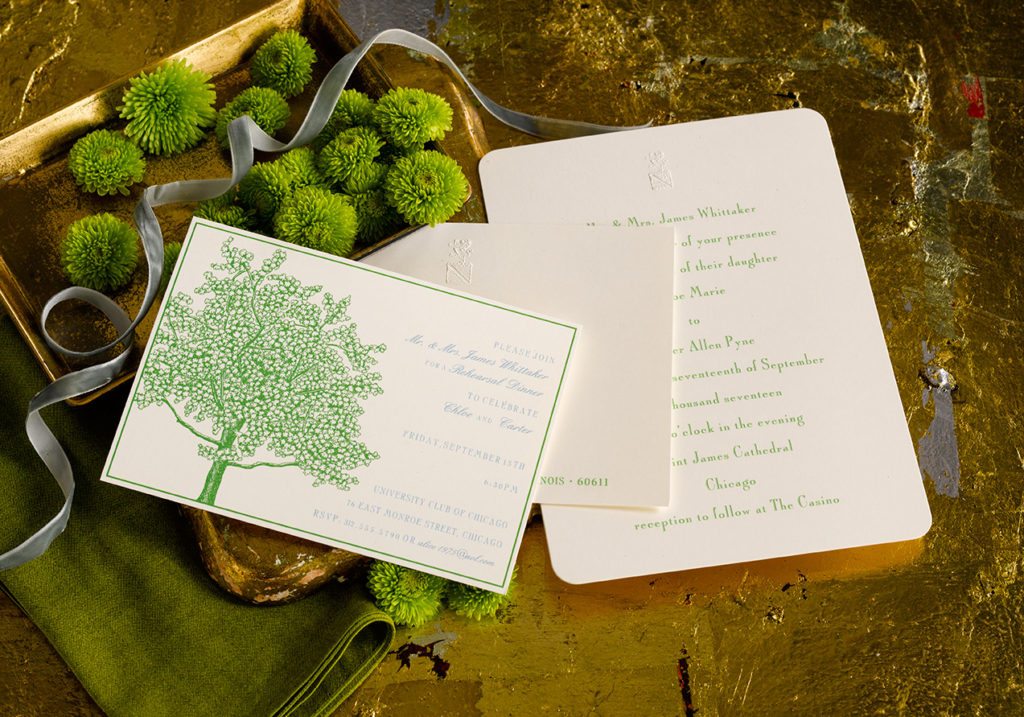 PLEASE JOIN
Mr. & Mrs. James Whittaker
FOR A Rehearsal Dinner
TO CELEBRATE
Chloe AND Carter
FRIDAY, SEPTEMBER 15TH
6:30PM
UNIVERSITY CLUB OF CHICAGO
76 EAST MONROE STREET, CHICAGO
RSVP: 312.555.5790 OR alice1975@aol.com
NOIS · 60611
& Mrs. James Whittaker
of your presence
of their daughter
oe Marie
to
er Allen Pyne
seventeenth of September
thousand seventeen
o'clock in the evening
int James Cathedral
Chicago
reception to follow at The Casino